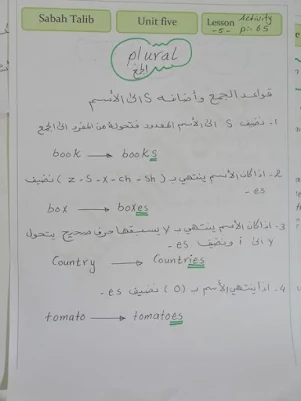 Sabah Talib
Unit five
Lesson Activity
-5- p:- 65
plural
الجمع
قواعد الجمع وأضافة S الى الأسم
1- نضيف S الى الأسم المعدود فتحوله من المفرد الى الجمع
book → books
2- اذا كان الأسم ينتهي بـ (z - s - x - ch - sh) نضيف
es -
box → boxes
3- اذا كان الأسم ينتهي بـ y يسبقها حرف صحيح يتحول
y الى i ونضيف es -
Country → Countries
4- اذا ينتهي الأسم بـ (o) نضيف es -
tomato → tomatoes